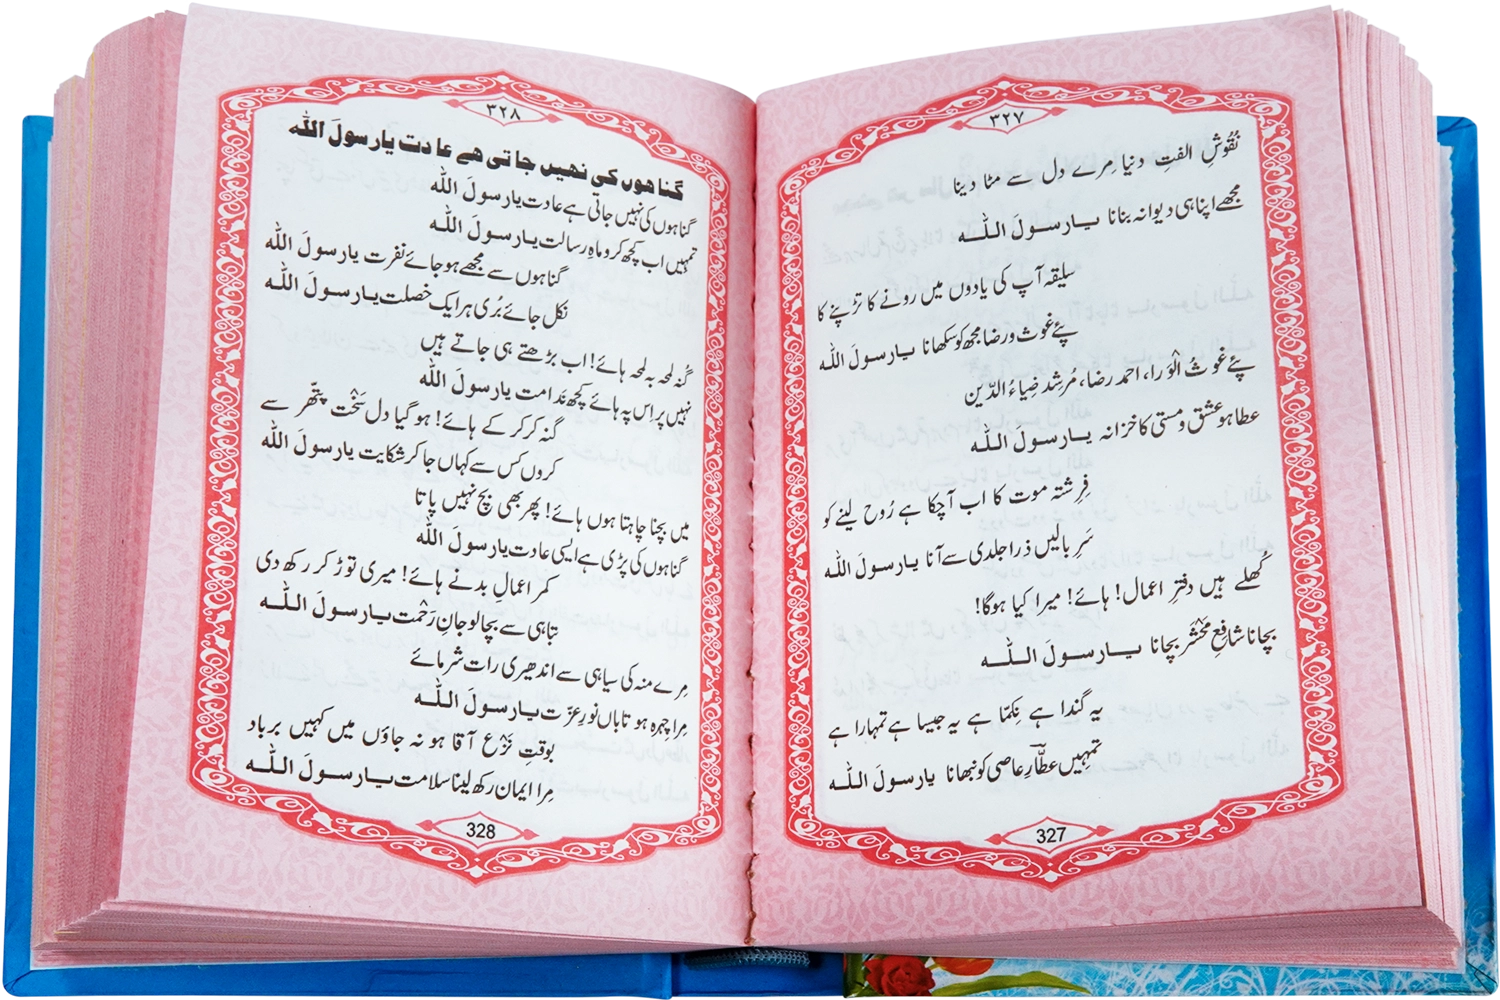 ۳۲۷
نُقُوشِ الفتِ دنیا مِرے دل سے مٹا دینا
مجھے اپنا ہی دیوانہ بنانا یارسولَ اللہ
سلیقہ آپ کی یادوں میں رونے کا تڑپنے کا
پئے غوث و رضا مجھ کو سکھانا یارسولَ اللہ
پئے غوثُ الْوَرا، احمد رضا، مُرشِد ضِیاءُ الدِّین
عطا ہو عشق و مستی کا خزانہ یارسولَ اللہ
فِرِشتہ موت کا اب آچکا ہے رُوح لینے کو
سَرِ بالیں ذرا جلدی سے آنا یارسولَ اللہ
کُھلے ہیں دفترِ اعمال! ہائے! میرا کیا ہوگا!
بچانا شافِعِ مَحْشَر بچانا یارسولَ اللہ
یہ گندا ہے نِکمّا ہے یہ جیسا ہے تمہارا ہے
تمہیں عطّارِ عاصی کو نبھانا یارسولَ اللہ
327
۳۲۸
گناھوں کی نھیں جاتی ھے عادت یارسولَ اللہ
گناہوں کی نہیں جاتی ہے عادت یارسولَ اللہ
تمہیں اب کچھ کرو ماہِ رسالت یارسولَ اللہ
گناہوں سے مجھے ہوجائے نفرت یارسولَ اللہ
نکل جائے بُری ہر ایک خصلت یارسولَ اللہ
گُنہ لمحہ بہ لمحہ ہائے! اب بڑھتے ہی جاتے ہیں
نہیں پر اِس پہ ہائے کچھ نَدامت یارسولَ اللہ
گنہ کر کر کے ہائے! ہوگیا دل سَخْت پتّھر سے
کروں کس سے کہاں جا کر شکایت یارسولَ اللہ
میں بچنا چاہتا ہوں ہائے! پھر بھی بچ نہیں پاتا
گناہوں کی پڑی ہے ایسی عادت یارسولَ اللہ
کمر اعمالِ بد نے ہائے! میری توڑ کر رکھ دی
تباہی سے بچالو جانِ رَحْمت یارسولَ اللہ
مِرے منہ کی سیاہی سے اندھیری رات شرمائے
مِرا چہرہ ہو تاباں نورِ عزّت یارسولَ اللہ
بوقتِ نَزْع آقا ہو نہ جاؤں میں کہیں برباد
مِرا ایمان رکھ لینا سلامت یارسولَ اللہ
328